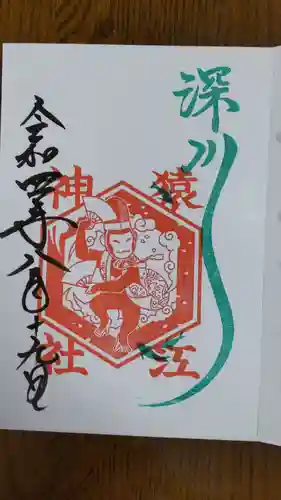 深川
猿江
神社
令和四年八月十九日